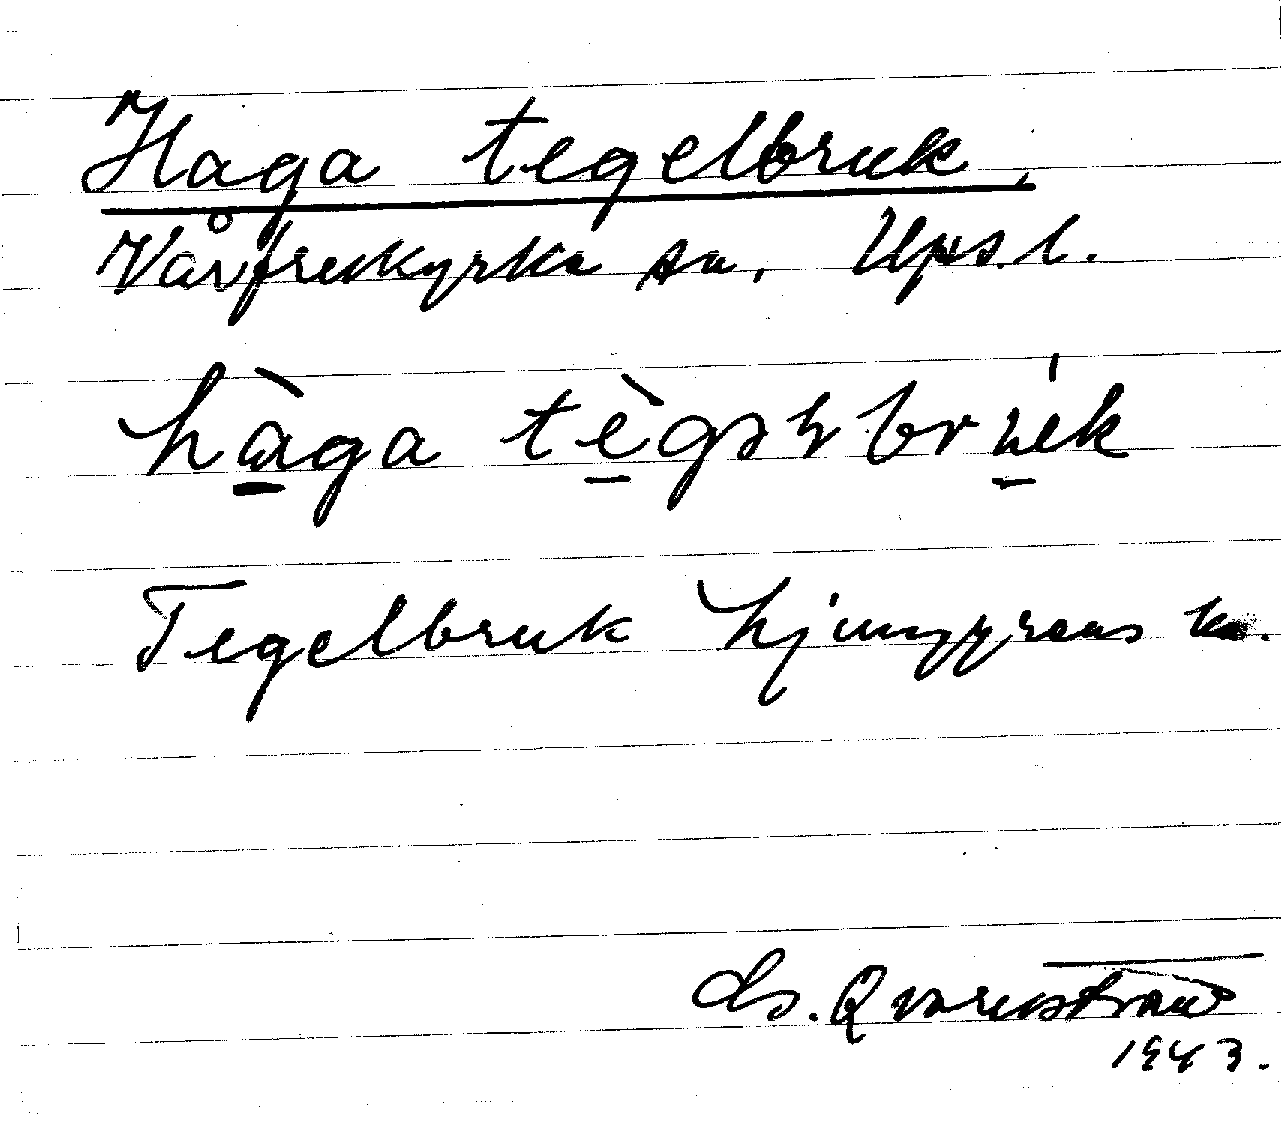 Haga tegelbruk,
Vårfrukyrka sn, Upsl.
hàga tègəɫbrúk
Tegelbruk hj
Qvarnström
1943.